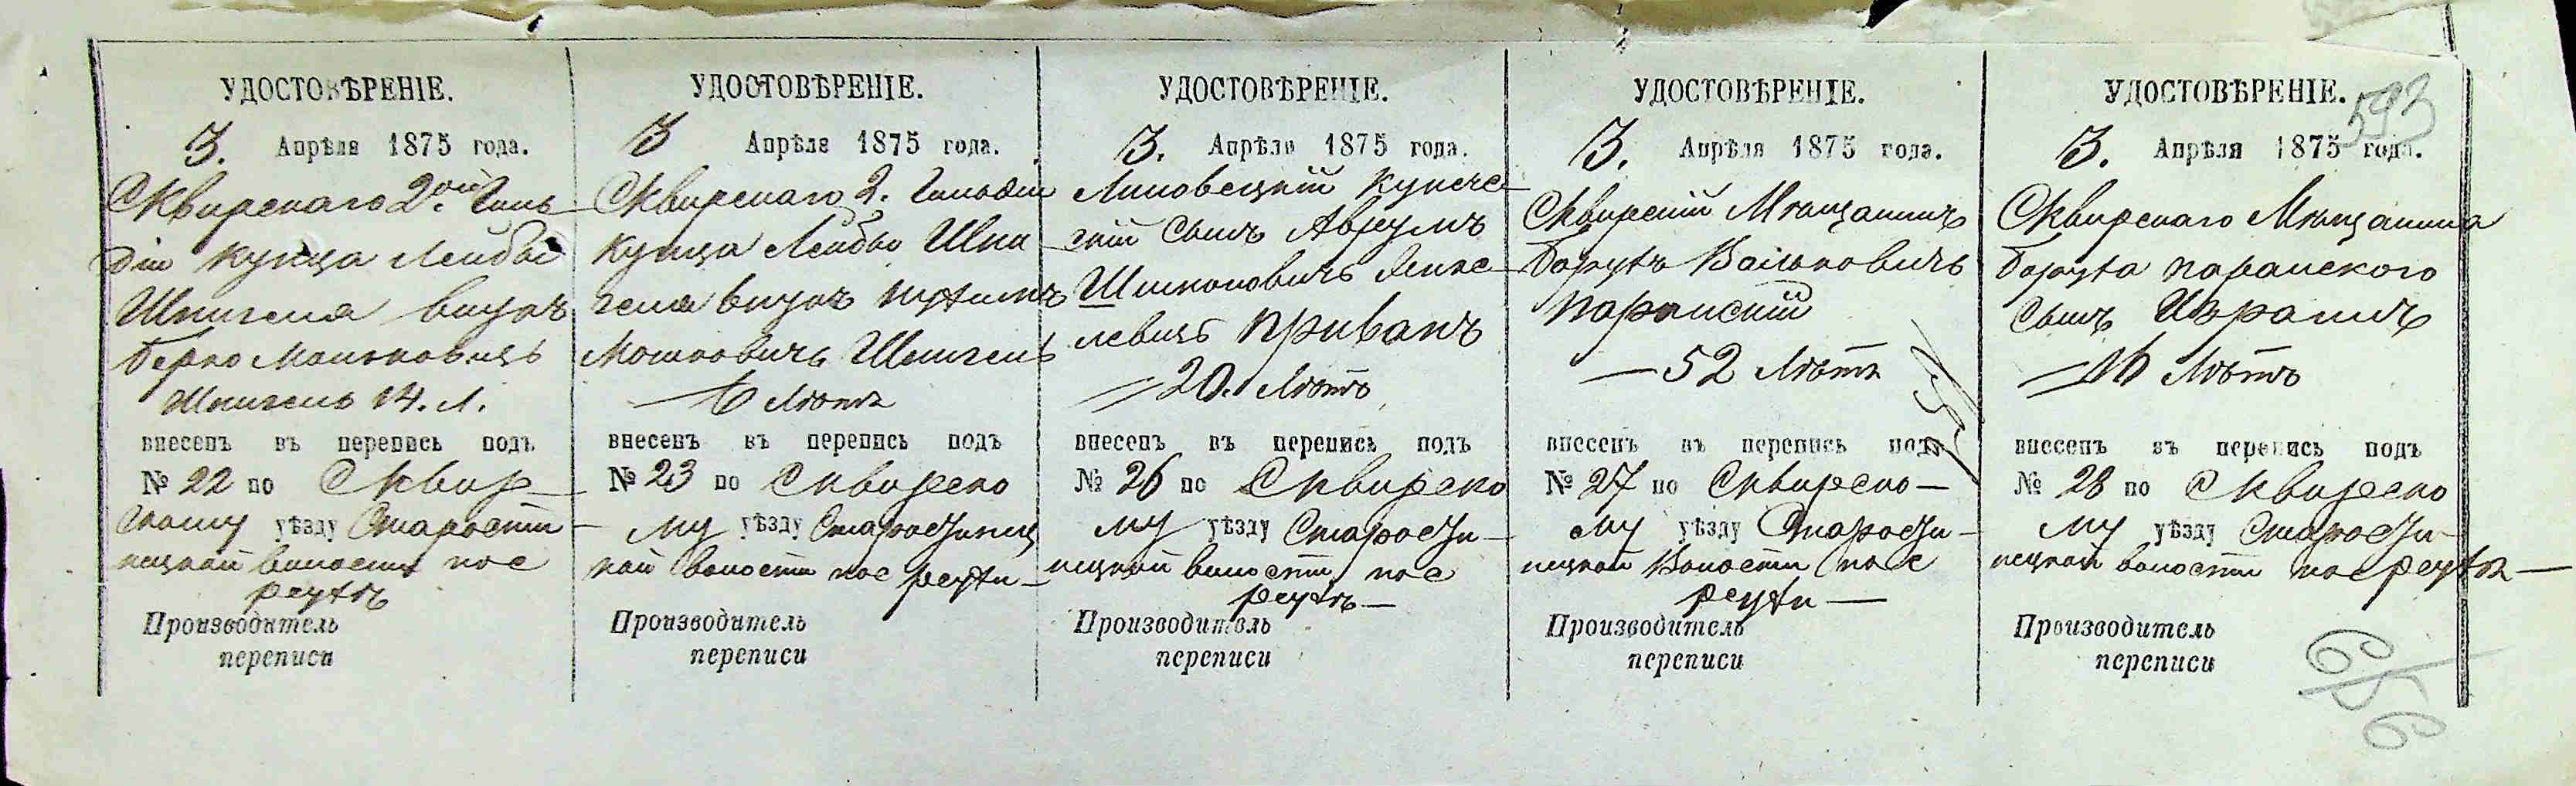 УДОСТОВѢРЕНІЕ.
3. Апрѣля 1875 года.
Сквирскаго 2ой Гиль
діи купца Лейбы
Шпигеля внукъ
Берко Мошковичъ
Шпигель 14. Л.
внесенъ въ перепись подъ
№ 22 по Сквир
скому уѣзду Старости
нецкой волости пос
Реутъ
Производитель
переписи
УДОСТОВѢРЕНІЕ.
3 Апрѣля 1875 года.
Сквирскаго 2. Гильдіи
купца Лейбы Шпи
геля внукъ
Мошковичъ Шпигель
6 Лѣтъ
внесенъ въ перепись подъ
№ 23 по Сквирско
му уѣзду Старостинец
кой волости пос Реути
Производитель
переписи
УДОСТОВѢРЕНІЕ.
3. Апрѣля 1875 года.
Липовецкій купече
скій сынъ Аврумъ
Шимоновичъ
Приванъ
20. Лѣтъ
внесенъ въ перепись подъ
№ 26 по Сквирско
му уѣзду Старости
нецкой волости пос
Реутъ
Производитель
переписи
УДОСТОВѢРЕНІЕ.
3. Апрѣля 1875 года.
Сквирскій Мѣщанинъ
Борухъ Вольковичъ
Поранскій
52 Лѣтъ
внесенъ въ перепись подъ
№ 27 по Сквирско
му уѣзду Старости
нецкой Волости пос
Реути
Производитель
переписи
УДОСТОВѢРЕНІЕ. 593
3. Апрѣля 1875 года.
Сквирскаго Мѣщанина
Боруха Поранского
сынъ Израиль
16 Лѣтъ
внесенъ въ перепись подъ
№ 28 по Сквирско
му уѣзду Старости
нецкой волости пос Реутъ
Производитель
переписи
656